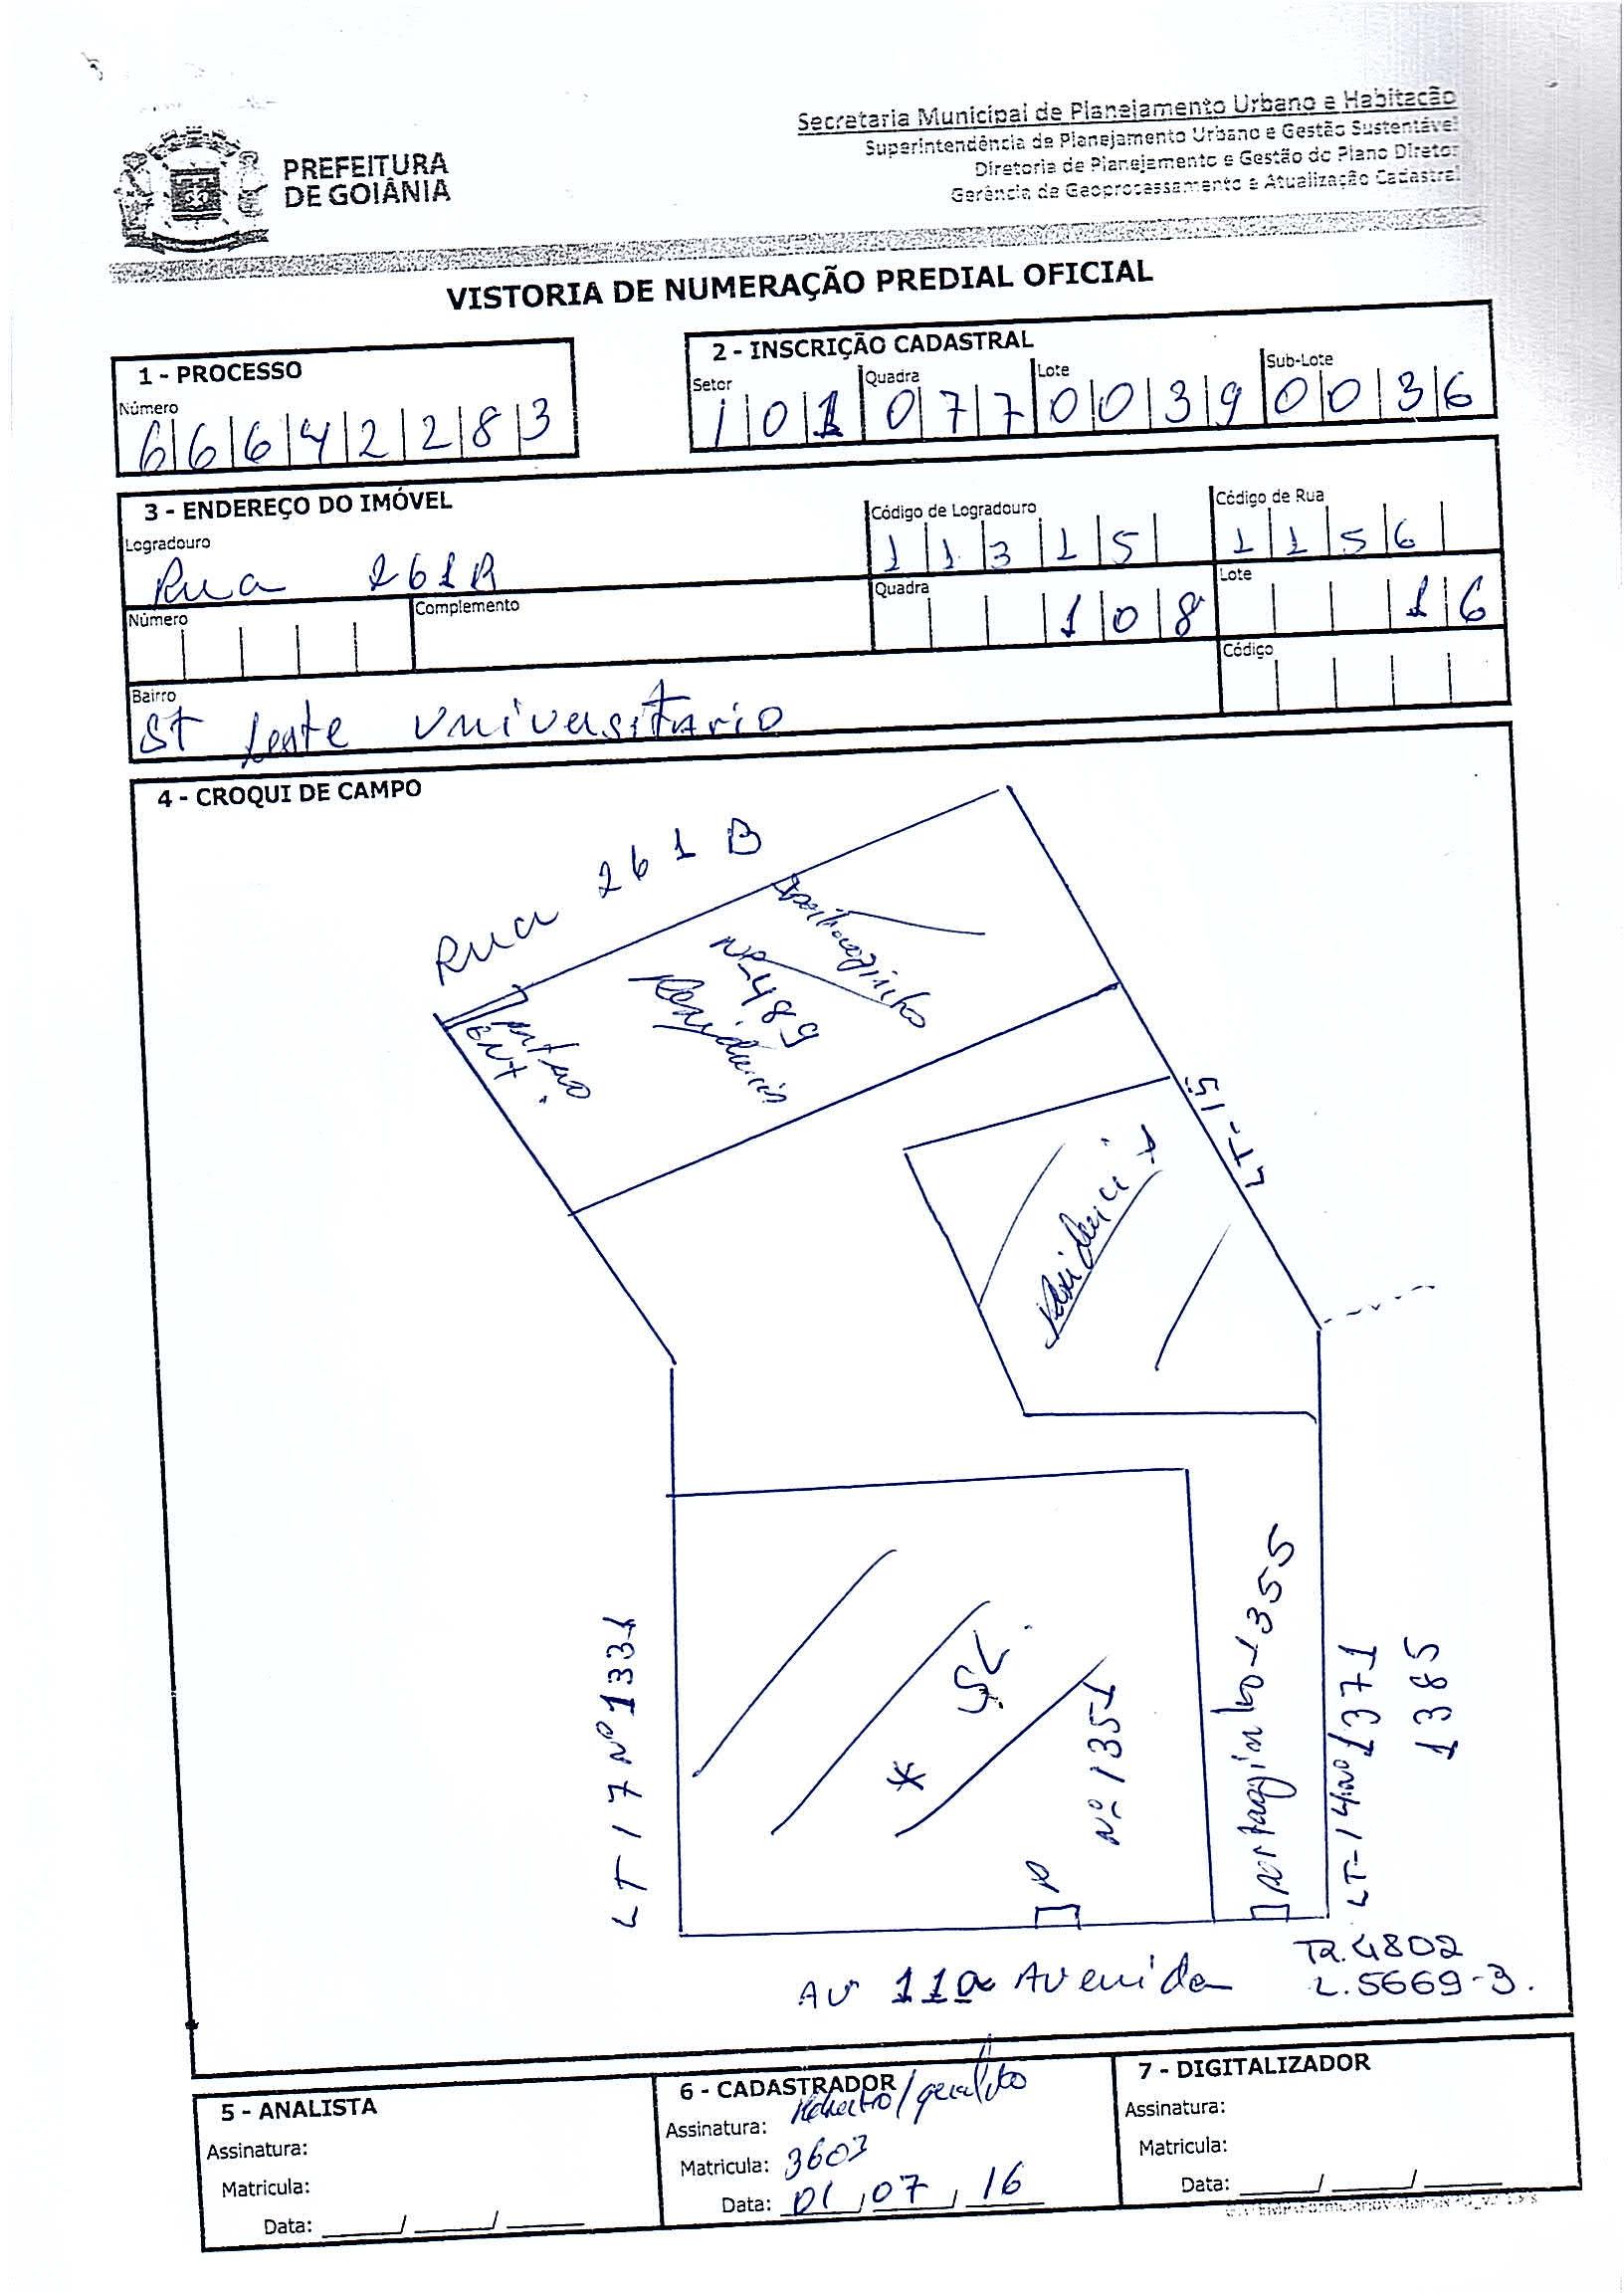 PREFEITURA
DE GOIÂNIA
Secretaria Municipal de Planejamento Urbano e Habitação
Superintendência de Planejamento Urbano e Gestão Sustentável
Diretoria de Planejamento e Gestão do Plano Diretor
Gerência de Geoprocessamento e Atualização Cadastral
VISTORIA DE NUMERAÇÃO PREDIAL OFICIAL
1 - PROCESSO
Número
6 6 6 4 2 2 8 3
2 - INSCRIÇÃO CADASTRAL
Setor Quadra Lote Sub-Lote
1 0 1 0 7 7 0 0 3 9 0 0 3 6
3 - ENDEREÇO DO IMÓVEL
Logradouro Código de Logradouro Código de Rua
Rua 261B 1 1 3 1 5 1 1 5 6
Número Complemento Quadra Lote
1 0 8 1 6
Bairro Código
St Leste Universitario
4 - CROQUI DE CAMPO
Rua 261 B
portaozinho
Nº 489
Residencia
ent.
LT-15
Residencia
LT 17 Nº 1331
*
Nº 1351
P
portaozinho 1355
LT-14 nº 1371
1385
AV 11ª Avenida
TR.4802
L.5669-3.
5 - ANALISTA
Assinatura:
Matricula:
Data: ____/____/____
6 - CADASTRADOR
Assinatura:
Matricula: 3603
Data: 01/07/16
7 - DIGITALIZADOR
Assinatura:
Matricula:
Data: ____/____/____